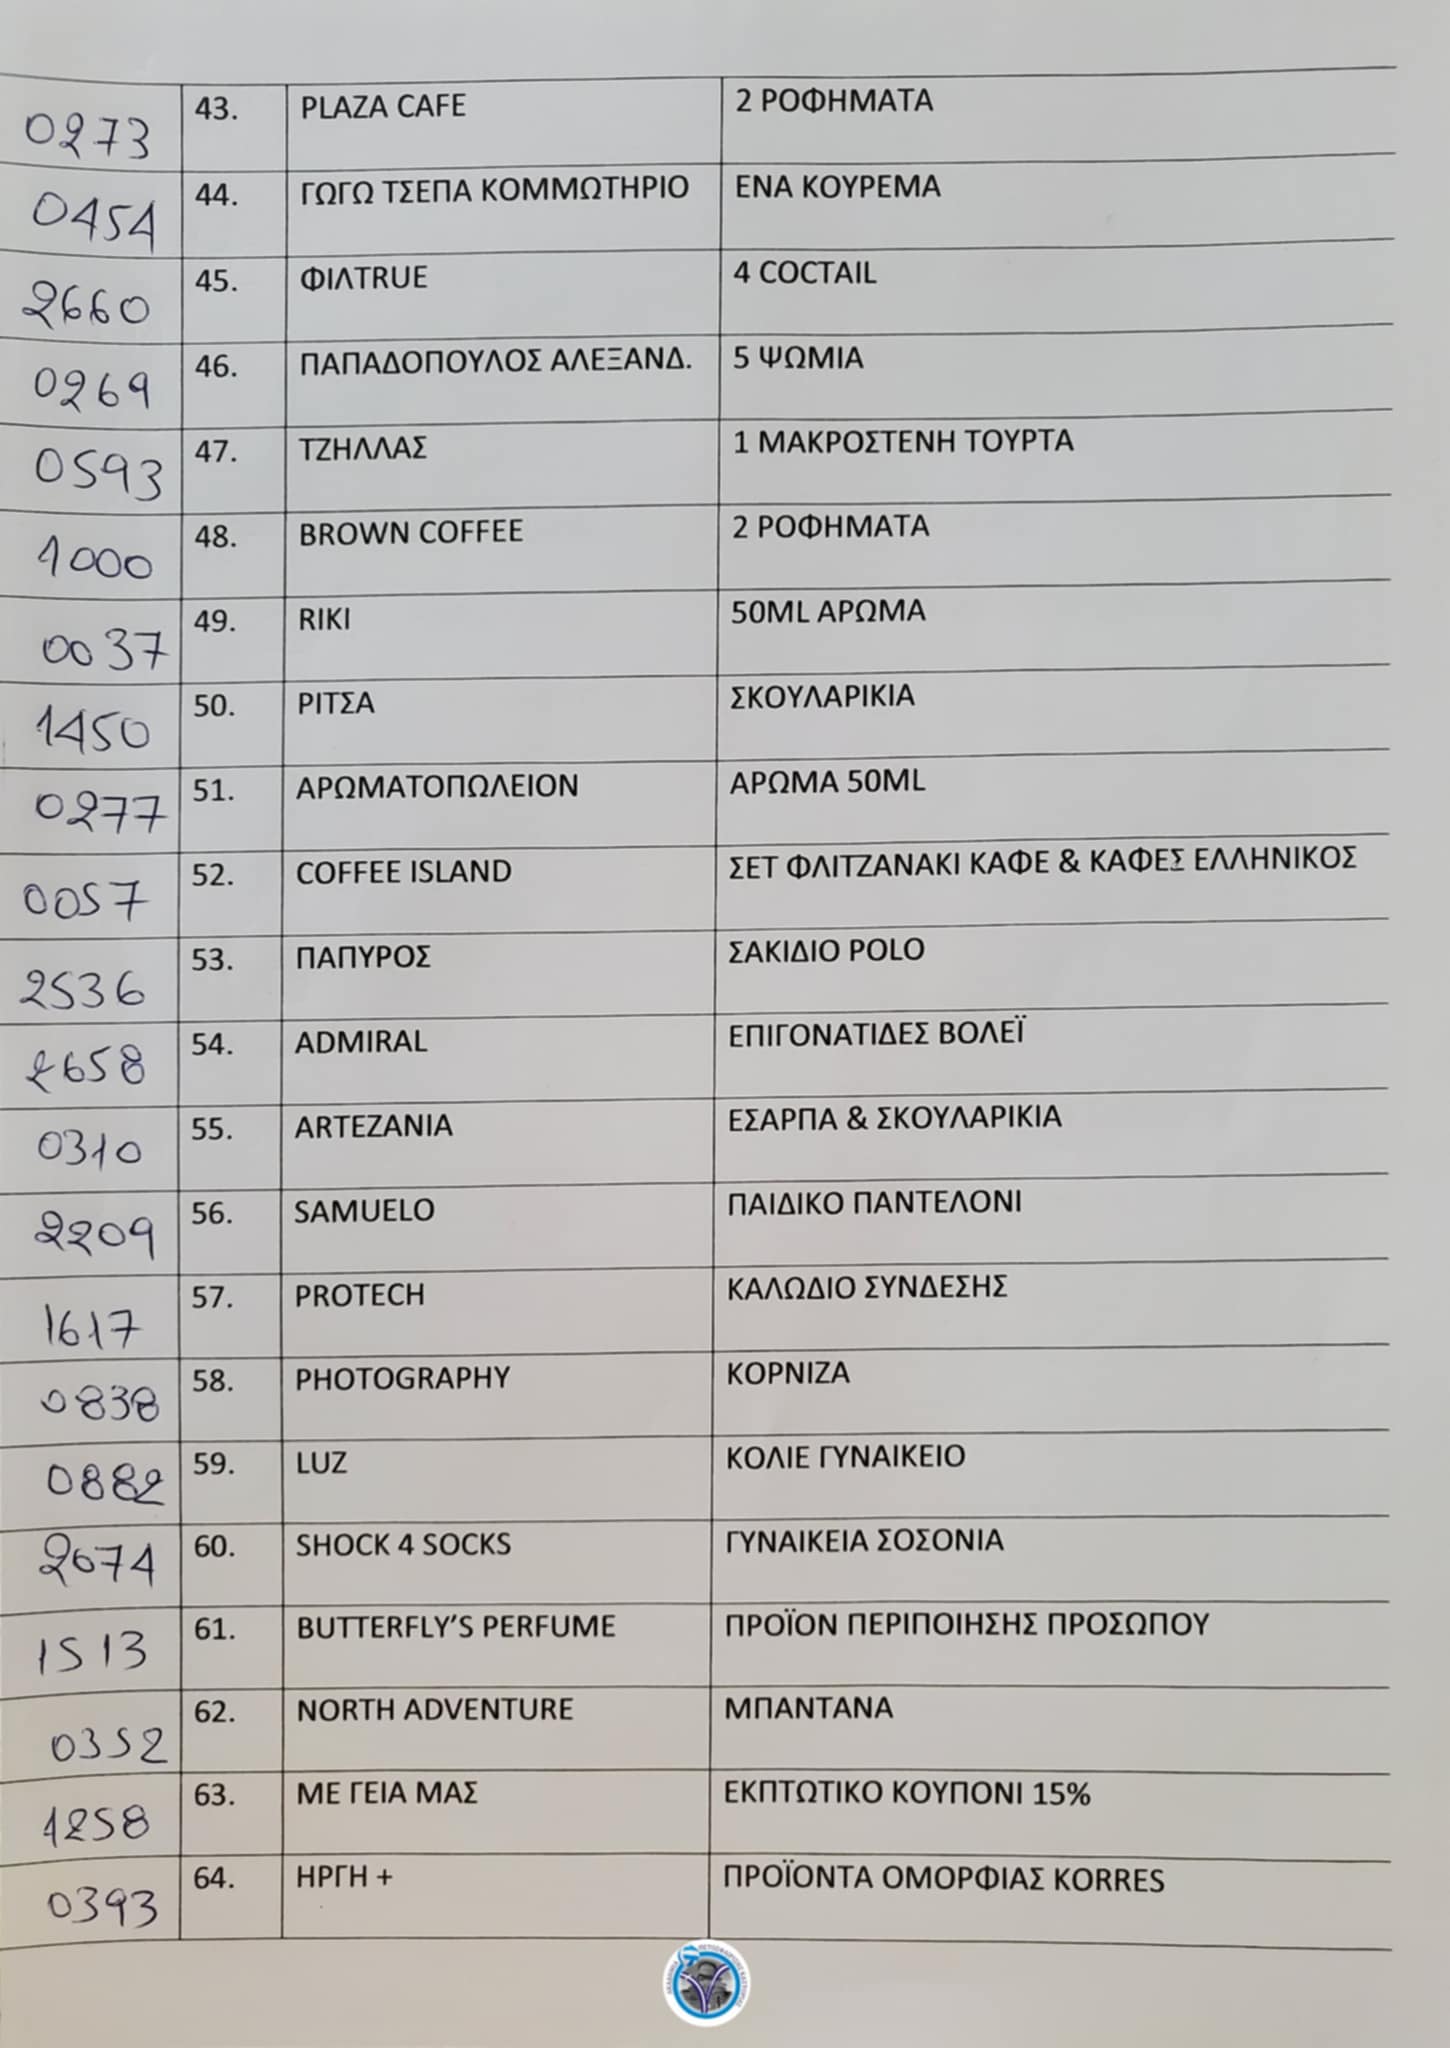 0273 43. PLAZA CAFE 2 ΡΟΦΗΜΑΤΑ
0454 44. ΓΩΓΩ ΤΣΕΠΑ ΚΟΜΜΩΤΗΡΙΟ ΕΝΑ ΚΟΥΡΕΜΑ
2660 45. ΦΙΛTRUE 4 COCTAIL
0269 46. ΠΑΠΑΔΟΠΟΥΛΟΣ ΑΛΕΞΑΝΔ. 5 ΨΩΜΙΑ
0593 47. ΤΖΗΛΛΑΣ 1 ΜΑΚΡΟΣΤΕΝΗ ΤΟΥΡΤΑ
1000 48. BROWN COFFEE 2 ΡΟΦΗΜΑΤΑ
0037 49. RIKI 50ML ΑΡΩΜΑ
1450 50. ΡΙΤΣΑ ΣΚΟΥΛΑΡΙΚΙΑ
0277 51. ΑΡΩΜΑΤΟΠΩΛΕΙΟΝ ΑΡΩΜΑ 50ML
0057 52. COFFEE ISLAND ΣΕΤ ΦΛΙΤΖΑΝΑΚΙ ΚΑΦΕ & ΚΑΦΕΣ ΕΛΛΗΝΙΚΟΣ
2536 53. ΠΑΠΥΡΟΣ ΣΑΚΙΔΙΟ POLO
2658 54. ADMIRAL ΕΠΙΓΟΝΑΤΙΔΕΣ ΒΟΛΕΪ
0310 55. ARTEZANIA ΕΣΑΡΠΑ & ΣΚΟΥΛΑΡΙΚΙΑ
2209 56. SAMUELO ΠΑΙΔΙΚΟ ΠΑΝΤΕΛΟΝΙ
1617 57. PROTECH ΚΑΛΩΔΙΟ ΣΥΝΔΕΣΗΣ
0838 58. PHOTOGRAPHY ΚΟΡΝΙΖΑ
0882 59. LUZ ΚΟΛΙΕ ΓΥΝΑΙΚΕΙΟ
2674 60. SHOCK 4 SOCKS ΓΥΝΑΙΚΕΙΑ ΣΟΣΟΝΙΑ
1513 61. BUTTERFLY’S PERFUME ΠΡΟΪΟΝ ΠΕΡΙΠΟΙΗΣΗΣ ΠΡΟΣΩΠΟΥ
0352 62. NORTH ADVENTURE ΜΠΑΝΤΑΝΑ
1258 63. ΜΕ ΓΕΙΑ ΜΑΣ ΕΚΠΤΩΤΙΚΟ ΚΟΥΠΟΝΙ 15%
0393 64. ΗΡΓΗ + ΠΡΟΪΟΝΤΑ ΟΜΟΡΦΙΑΣ KORRES